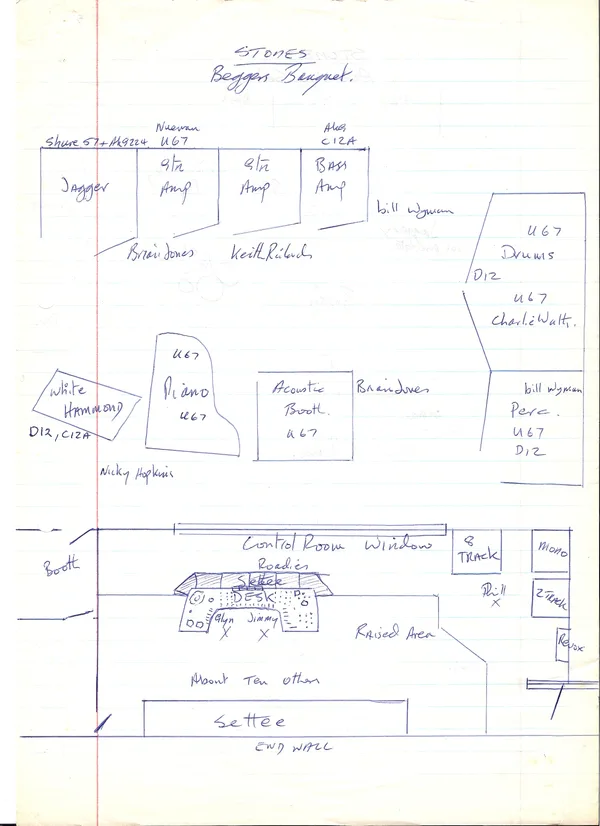 STONES
Beggers Banquet.
Shure 57 + AKG224
Nueman
U67
AKG
C12A
Jagger
Gtr
Amp
Gtr
Amp
BASS
Amp
bill Wyman
Brian Jones
Keith Richards
U67
Drums
D12
U67
Charlie Watts.
White
HAMMOND
D12, C12A
U67
Piano
U67
Nicky Hopkins
Acoustic
Booth.
U67
Brian Jones
bill Wyman
Perc.
U67
D12
Booth
Control Room Window
Roadies
Settee
DESK
Glyn
X
Jimmy
X
8
TRACK
MONO
Phill
X
2 TRACK
Revox
RAISED AREA
About Ten Others
Settee
END WALL